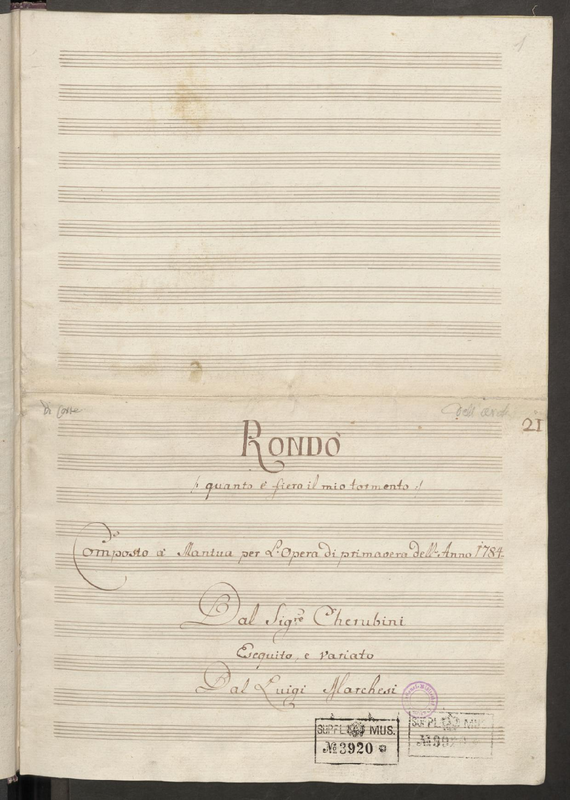 1
21
RONDÒ
/ quanto è fiero il mio tormento /
Composto a Mantua per L'Opera di primavera dell'Anno 1784
Dal Sigre Cherubini
Eseguito, e variato
Dal Luigi Marchesi
SUPPL. MUS.
№ 3920
SUPPL. MUS.
№ 3920